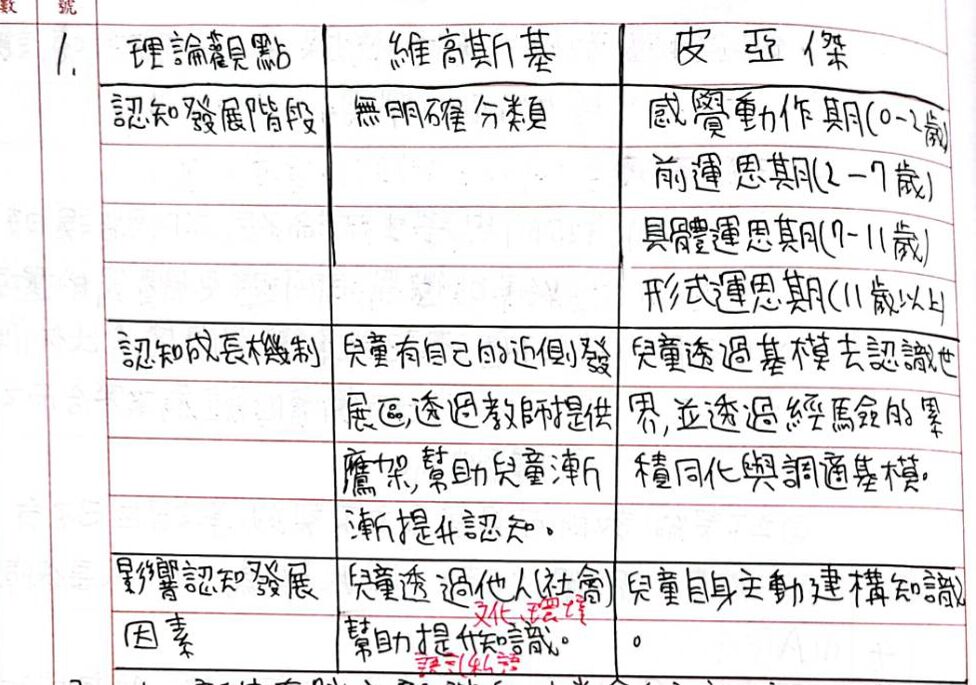 數 號
1. 理論觀點 維高斯基 皮亞傑
認知發展階段 無明確分類 感覺動作期(0-2歲)
前運思期(2-7歲)
具體運思期(7-11歲)
形式運思期(11歲以上
認知成長機制 兒童有自己的近側發 兒童透過基模去認識世
展區,透過教師提供 界,並透過經驗的累
鷹架,幫助兒童漸 積同化與調適基模。
漸提升認知。
影響認知發展 兒童透過他人(社會) 兒童自身主動建構知識
文化、環境
因素 幫助提升知識。 。
語言私語